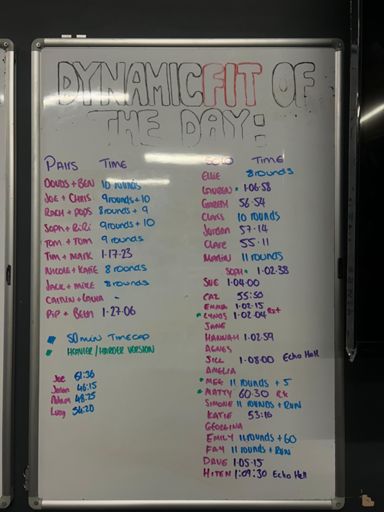 DYNAMICFIT OF
THE DAY:
PAIRS TIME
DOUDS + BEN 10 rounds
JOE + CHRIS 9rounds + 10
ROCH + POPS 8rounds + 9
SOPH + RIRI 9rounds + 10
TOM + TOM 9 rounds
TIM + MARK 1-17-23
NICOLE + KATIE 8 rounds
JACK + MIKE 8rounds
CAITLIN +
PIP + BETH 1-27-06
50 min TIMECAP
HEAVIER / HARDER VERSION
Joe 61:36
46:15
Adam 48:25
Lucy 54:20
SOLO TIME
ELLIE 8rounds
LAUREN 1:06:58
56-54
CHRIS 10 rounds
JORDAN 57-14
CLARE 55-11
MARTIN 11 rounds
SOPH 1-02-38
SUE 1-04:00
CAZ 55:50
EMMA 1-02-15
LYNDS 1-02-04 RX
JUNE
HANNAH 1-02:59
AGNES
JILL 1-08:00 Echo Hell
AMELIA
MEG 11 rounds + 5
MATTY 60-30 RX
SIMONE 11 ROUNDS + RUN
KATIE 53:16
GEORGINA
EMILY 11 rounds + 60
FAY 11 rounds + RUN
DAVE 1-05-15
HITEN 1:09:30 Echo Hell